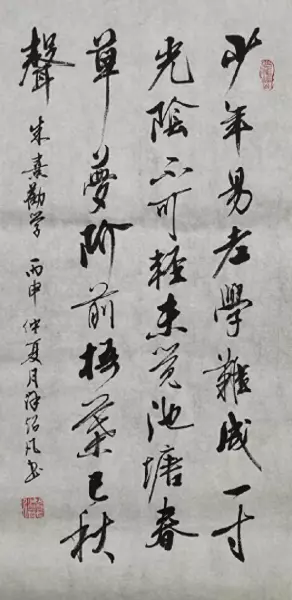 少年易老學難成一寸
光陰不可輕未覺池塘春
草夢阶前梧葉已秋
聲
朱熹勸学 丙申仲夏月